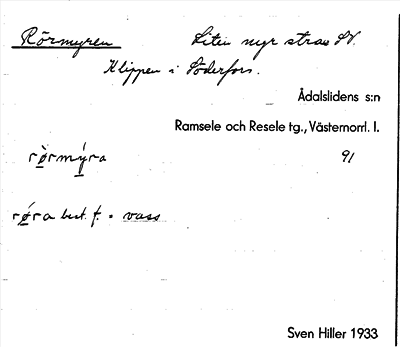 Rörmyren Liten myr strax SV.
Klippen i Söderfors.
Ådalslidens s:n
Ramsele och Resele tg., Västernorrl. l.
rø̀rmýra 91
røra best. f. = vass
Sven Hiller 1933